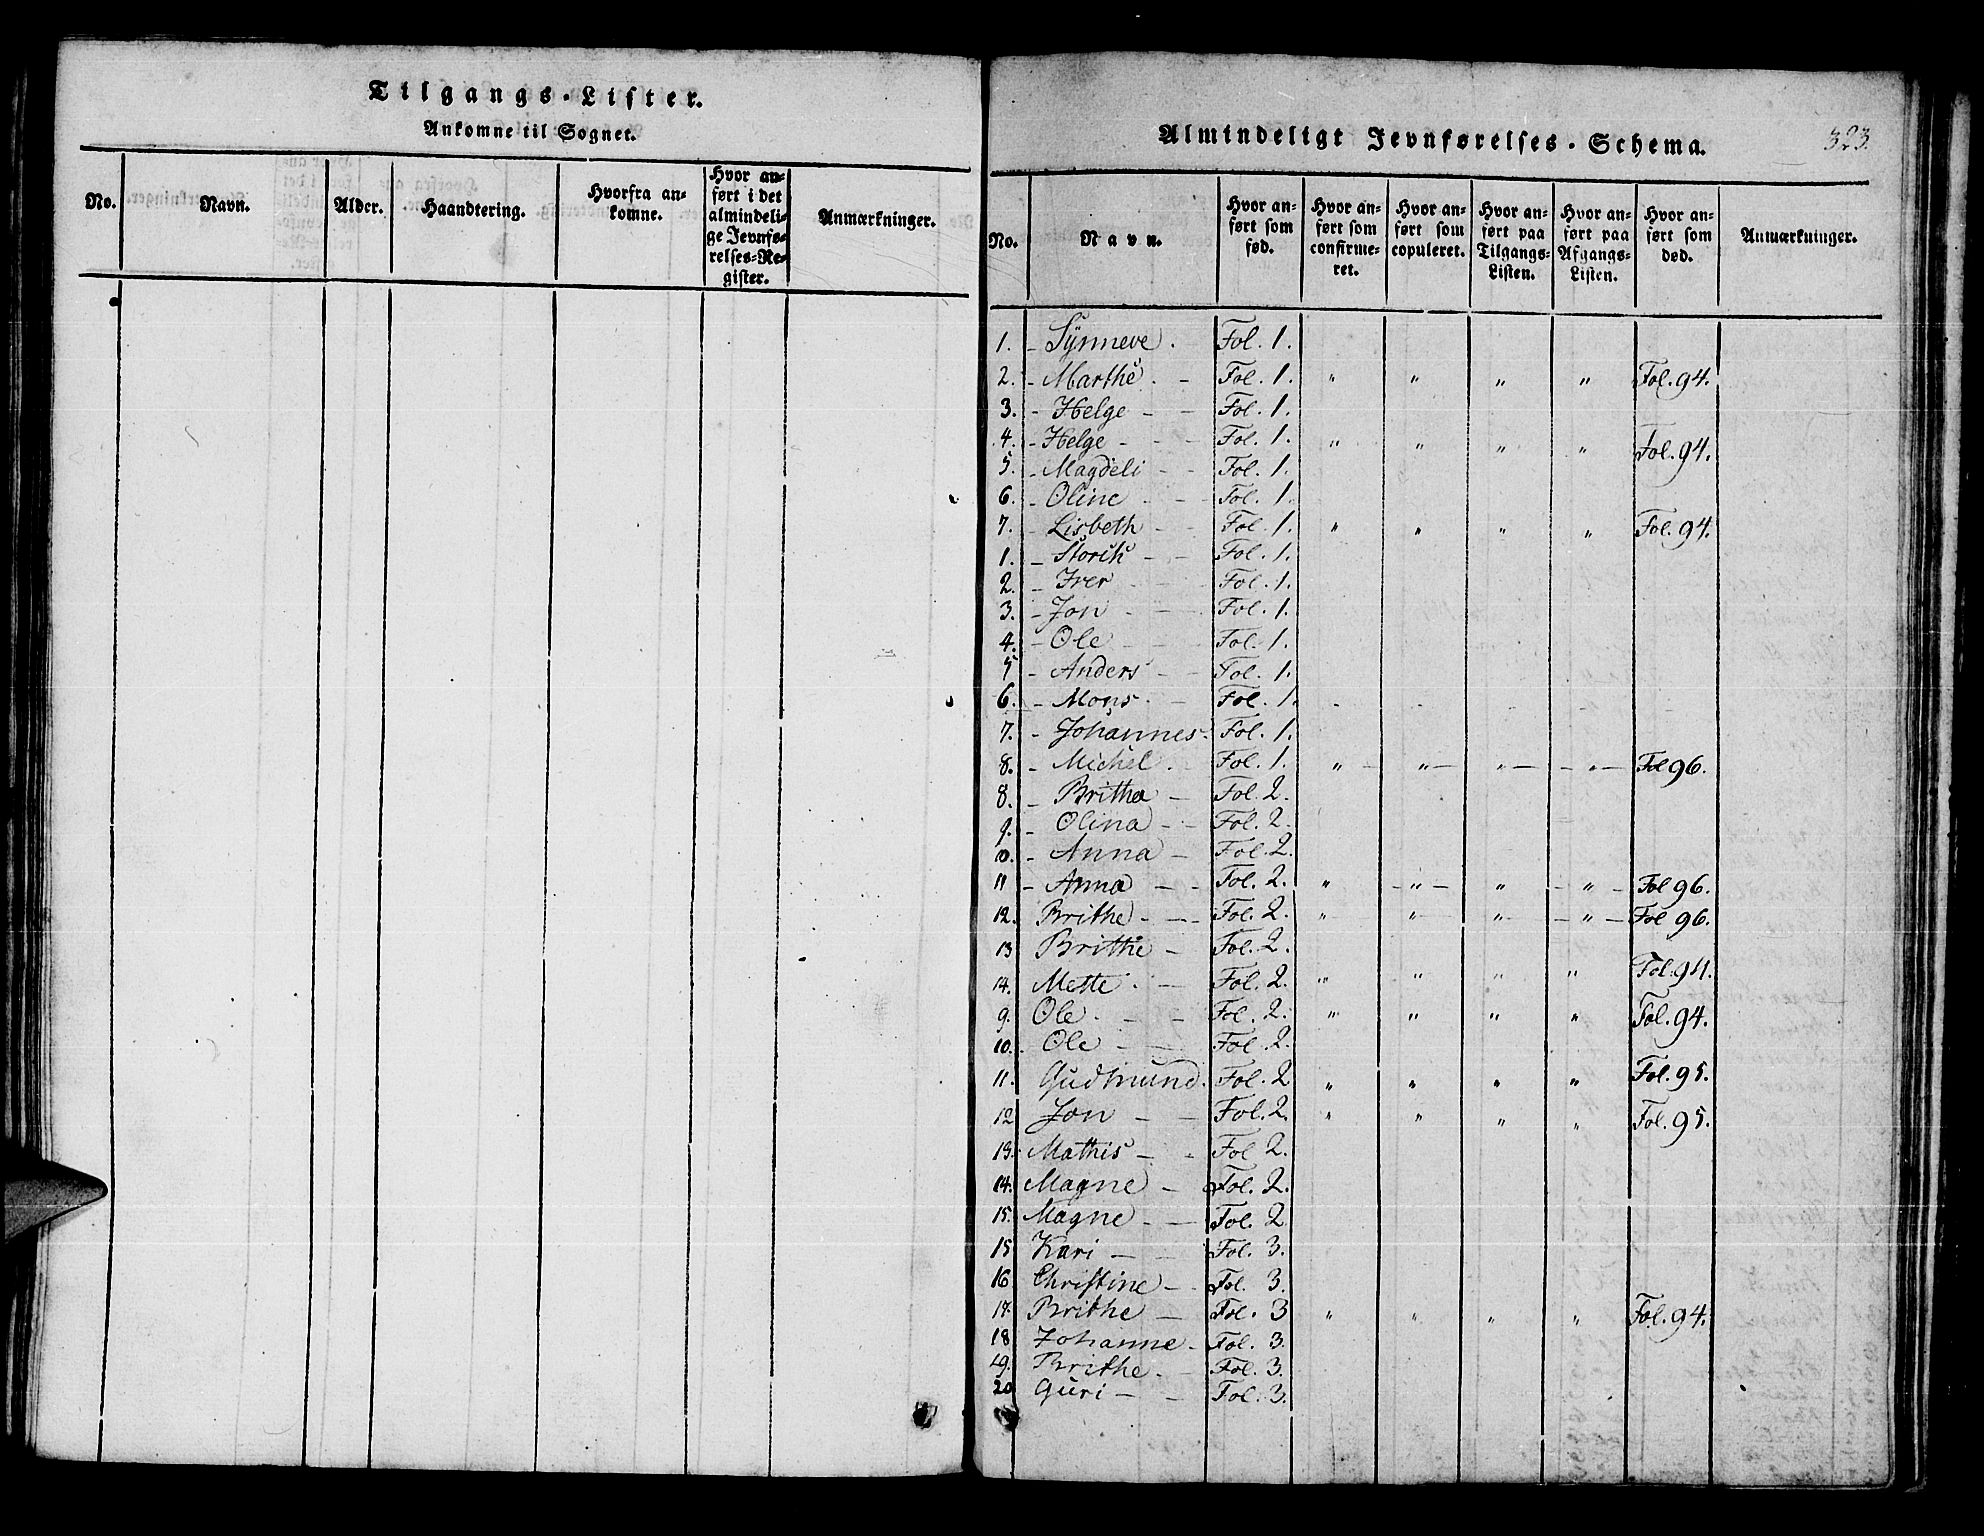 Tilgangs-Lister.
Ankomne til Sognet.
No.
Navn.
Alder.
Haandtering.
Hvorfra an-
komne.
Hvor an-
ført i det
almindeli-
ge Jevnfø-
relses-Re-
gister.
Anmærkninger.
Almindeligt Jevnførelses-Schema.
323.
No.
Navn.
Hvor an-
ført som
fød.
Hvor an-
ført som
confirme-
ret.
Hvor an-
ført som
copuleret.
Hvor an-
ført paa
Tilgangs-
Listen.
Hvor an-
ført paa
Afgangs-
Listen.
Hvor an-
ført som
død.
Anmærkninger.
1. - Synneve. Fol. 1.
2. - Marthe. - Fol. 1. " " " " Fol. 94.
3. - Helge - - Fol. 1.
4. - Helge - - Fol. 1. " " " " Fol. 94.
5. - Magdeli - - Fol. 1.
6. - Oline - - Fol. 1.
7. - Lisbeth - - Fol. 1. " " " " Fol. 94.
1. - Storik - - Fol. 1.
2. - Iver - - Fol. 1.
3. - Jon - - Fol. 1.
4. - Ole - - Fol. 1.
5 - Anders - - Fol. 1.
6. - Mons - - Fol. 1.
7. - Johannes - Fol. 1.
8. - Michel. - Fol. 1. " - " - " - - " - Fol 96.
8. - Britha - Fol. 2.
9. - Olina - - Fol. 2.
10. - Anna - Fol. 2.
11 - Anna - - Fol. 2. " - " - " - " - Fol 96.
12. Brithe - - Fol. 2. " " " - " - Fol 96.
13 Brithe - Fol. 2.
14. Mette - Fol. 2. " " " " Fol. 94.
9. Ole. - - Fol. 2. " " " " Fol. 94.
10. Ole - - Fol. 2.
11. Gudmund. Fol. 2 " " " " Fol. 95.
12 Jon - - Fol. 2. " " " " Fol. 95.
13. Mathis - - Fol 2.
14. Magne - Fol. 2.
15. Magne - - Fol. 2
15 Kari - - Fol. 3.
16 Christine - - Fol. 3.
17. Brithe - Fol. 3 " " " " Fol. 94.
18 Johanne - Fol. 3.
19. Brithe. - Fol. 3.
20 Guri - - Fol. 3.